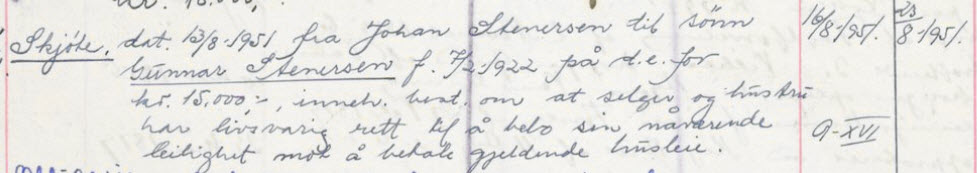 Skjøte, dat. 13/8-1951 fra Johan Stenersen til sønn 16/8-1951. 23/8-1951.
Gunnar Stenersen f. 7/2-1922 på d.e. for
kr. 15.000:-, inneh. best. om at selger og hustru
har livsvarig rett til å bebo sin nåværende 9-XVI
leilighet mot å betale gjeldende husleie.